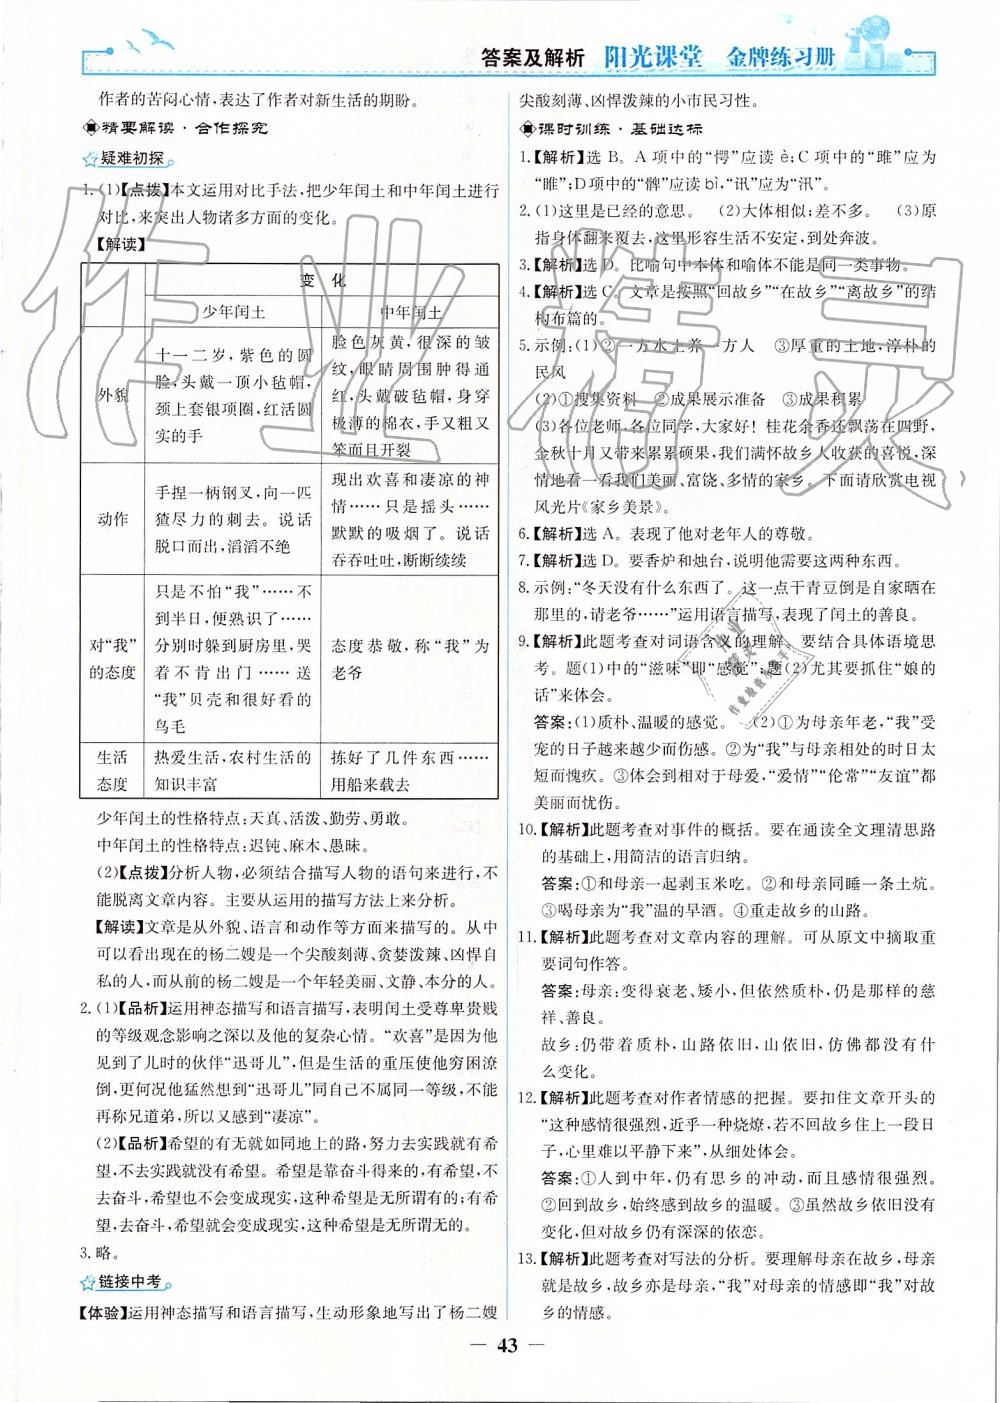 答案及解析 阳光课堂 金牌练习册
作者的苦闷心情,表达了作者对新生活的期盼。
精要解读·合作探究
疑难初探
1.(1)【点拨】本文运用对比手法,把少年闰土和中年闰土进行
对比,来突出人物诸多方面的变化。
【解读】
变 化
少年闰土 中年闰土
外貌
十一二岁,紫色的圆
脸,头戴一顶小毡帽,
颈上套银项圈,红活圆
实的手
脸色灰黄,很深的皱
纹,眼睛周围肿得通
红,头戴破毡帽,身穿
极薄的棉衣,手又粗又
笨而且开裂
动作
手捏一柄钢叉,向一匹
猹尽力的刺去。说话
脱口而出,滔滔不绝
现出欢喜和凄凉的神
情……只是摇头……
默默的吸烟了。说话
吞吞吐吐,断断续续
对“我”
的态度
只是不怕“我”……不
到半日,便熟识了……
分别时躲到厨房里,哭
着不肯出门……送
“我”贝壳和很好看的
鸟毛
态度恭敬,称“我”为
老爷
生活
态度
热爱生活,农村生活的
知识丰富
拣好了几件东西……
用船来载去
少年闰土的性格特点:天真、活泼、勤劳、勇敢。
中年闰土的性格特点:迟钝、麻木、愚昧。
(2)【点拨】分析人物,必须结合描写人物的语句来进行,不
能脱离文章内容。主要从运用的描写方法上来分析。
【解读】文章是从外貌、语言和动作等方面来描写的。从中
可以看出现在的杨二嫂是一个尖酸刻薄、贪婪泼辣、凶悍自
私的人,而从前的杨二嫂是一个年轻美丽、文静、本分的人。
2.(1)【品析】运用神态描写和语言描写,表明闰土受尊卑贵贱
的等级观念影响之深以及他的复杂心情。“欢喜”是因为他
见到了儿时的伙伴“迅哥儿”,但是生活的重压使他穷困潦
倒,更何况他猛然想到“迅哥儿”同自己不是同一等级,不能
再称兄道弟,所以又感到“凄凉”。
(2)【品析】希望的有无就如同地上的路,努力去实践就有希
望,不去实践就没有希望。希望是靠奋斗得来的,有希望,不
去奋斗,希望也不会变成现实,这种希望是无所谓有的;有希
望,去奋斗,希望就会变成现实,这种希望是无所谓无的。
3.略。
链接中考
【体验】运用神态描写和语言描写,生动形象地写出了杨二嫂
尖酸刻薄、凶悍泼辣的小市民习性。
课时训练·基础达标
1.【解析】选 B。A 项中的“愕”应读 è;C 项中的“睢”应为
“雎”;D 项中的“髀”应读 bì,“讯”应为“汛”。
2.(1)这里是已经的意思。 (2)大体相似;差不多。 (3)原
指身体翻来覆去,这里形容生活不安定,到处奔波。
3.【解析】选 D。比喻句中本体和喻体不能是同一类事物。
4.【解析】选 C。文章是按照“回故乡”“在故乡”“离故乡”的结
构布篇的。
5.示例:(1)②一方水土养一方人 ③厚重的土地,淳朴的
民风
(2)①搜集资料 ②成果展示准备 ③成果积累
(3)各位老师、各位同学,大家好!桂花余香还飘荡在四野,
金秋十月又带来累累硕果,我们满怀故乡人收获的喜悦,深
情地看一看我们美丽、富饶、多情的家乡。下面请欣赏电视
风光片《家乡美景》。
6.【解析】选 A。表现了他对老年人的尊敬。
7.【解析】选 D。要香炉和烛台,说明他需要这两种东西。
8.示例:“冬天没有什么东西了。这一点干青豆倒是自家晒在
那里的,请老爷……”运用语言描写,表现了闰土的善良。
9.【解析】此题考查对词语含义的理解。要结合具体语境思
考。题(1)中的“滋味”即“感觉”;题(2)尤其要抓住“娘的
话”来体会。
答案:(1)质朴、温暖的感觉。 (2)①为母亲年老,“我”受
宠的日子越来越少而伤感。②为“我”与母亲相处的时日太
短而愧疚。③体会到相对于母爱,“爱情”“伦常”“友谊”都
美丽而忧伤。
10.【解析】此题考查对事件的概括。要在通读全文理清思路
的基础上,用简洁的语言归纳。
答案:①和母亲一起剥玉米吃。②和母亲同睡一条土炕。
③喝母亲为“我”温的早酒。④重走故乡的山路。
11.【解析】此题考查对文章内容的理解。可从原文中摘取重
要词句作答。
答案:母亲:变得衰老、矮小,但依然质朴,仍是那样的慈
祥、善良。
故乡:仍带着质朴,山路依旧,山依旧,仿佛都没有什
么变化。
12.【解析】此题考查对作者情感的把握。要扣住文章开头的
“这种感情很强烈,近乎一种烧燎,若不回故乡住上一段日
子,心里难以平静下来”,从细处体会。
答案:①人到中年,仍有思乡的冲动,而且感情很强烈。
②回到故乡,始终感到故乡的温暖。③虽然故乡依旧没有
变化,但对故乡仍有深深的依恋。
13.【解析】此题考查对写法的分析。要理解母亲在故乡,母亲
就是故乡,故乡亦是母亲,“我”对母亲的情感就是“我”对故
乡的情感。
— 43 —
作业精灵